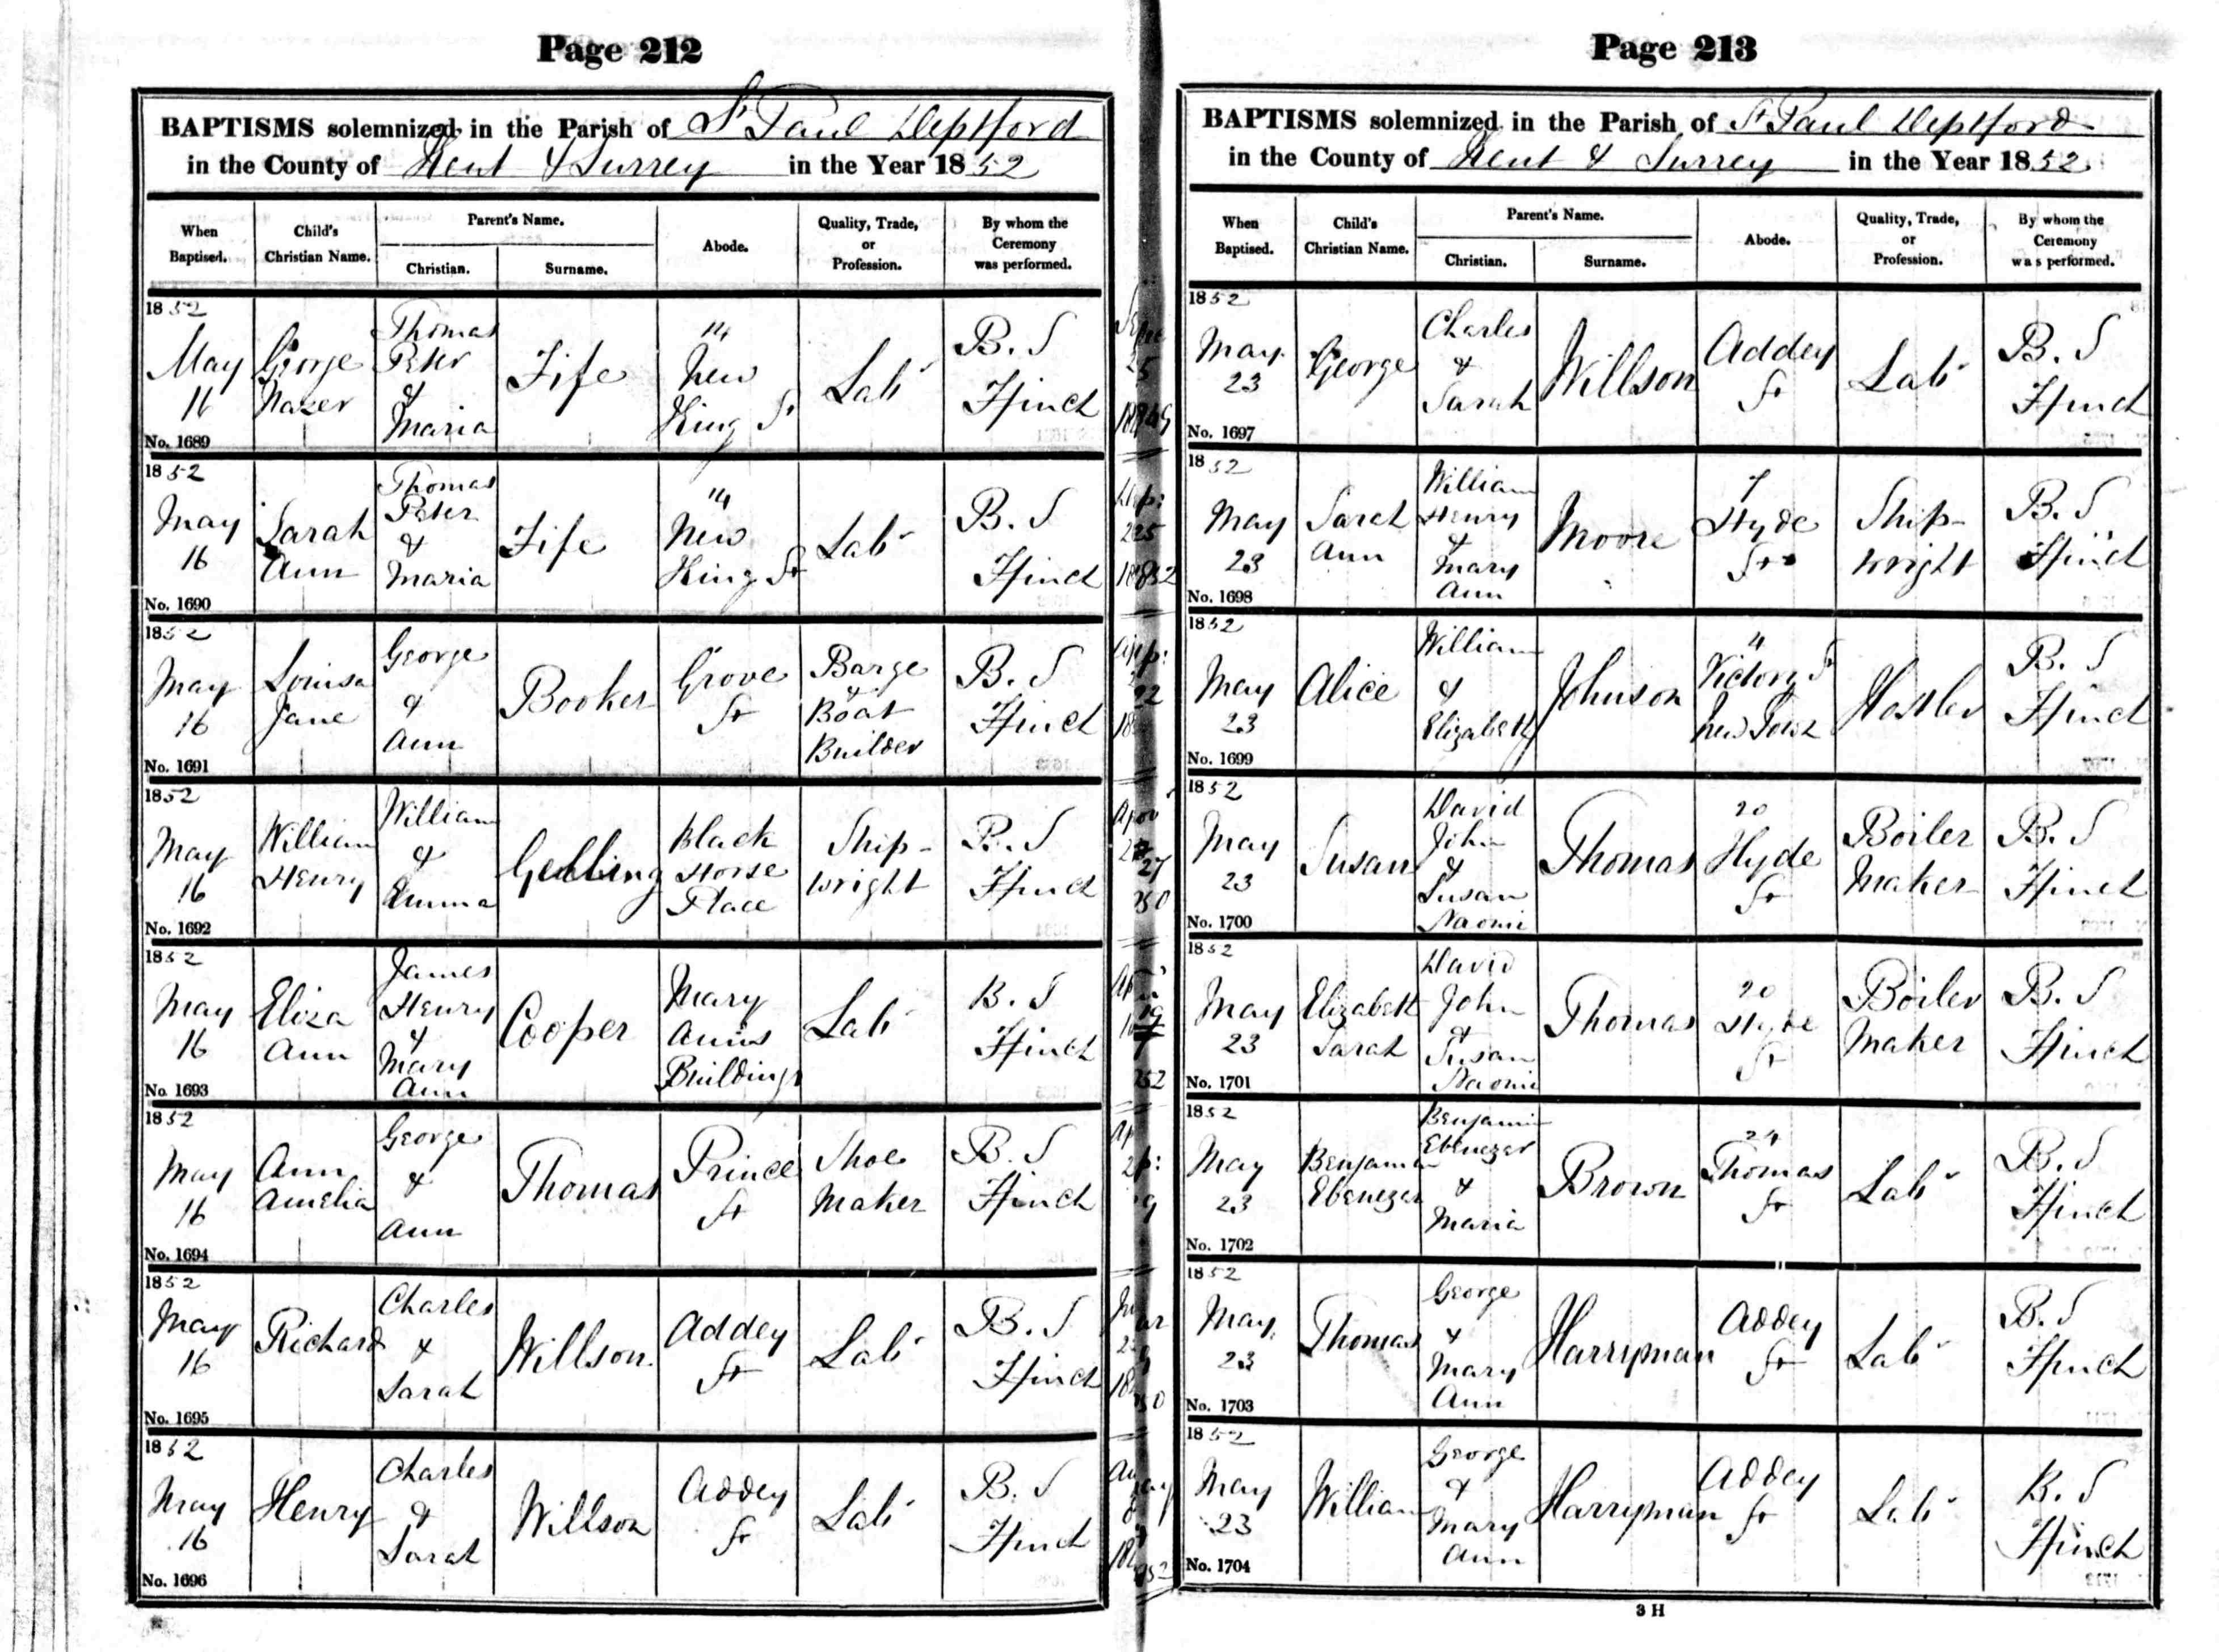 Page 212
BAPTISMS solemnized in the Parish of St Paul Deptford
in the County of Kent & Surrey in the Year 1852
When Baptised.
Child's Christian Name.
Parent's Name.
Christian.
Surname.
Abode.
Quality, Trade, or Profession.
By whom the Ceremony was performed.
1852
May 16
George
Thomas Peter & Maria
Fife
14 New King St
Lab
B. S Ffinch
No. 1689
1852
May 16
Sarah Ann
Thomas Peter & Maria
Fife
14 New King St
Lab
B. S Ffinch
No. 1690
1852
May 16
Louisa Jane
George & Ann
Booker
Grove St
Barge & Boat Builder
B. S Ffinch
No. 1691
1852
May 16
William Henry
William & Emma
Black Horse Place
Ship-wright
B. S Ffinch
No. 1692
1852
May 16
Eliza Ann
James Henry & Mary Ann
Cooper
Mary Anns Buildings
Lab
B. S Ffinch
No. 1693
1852
May 16
Ann Amelia
George & Ann
Thomas
Princes St
Shoe Maker
B. S Ffinch
No. 1694
1852
May 16
Richard
Charles & Sarah
Willson
Addey St
Lab
B. S Ffinch
No. 1695
1852
May 16
Henry
Charles & Sarah
Willson
Addey St
Lab
B. S Ffinch
No. 1696
Page 213
BAPTISMS solemnized in the Parish of St Paul Deptford
in the County of Kent & Surrey in the Year 1852
When Baptised.
Child's Christian Name.
Parent's Name.
Christian.
Surname.
Abode.
Quality, Trade, or Profession.
By whom the Ceremony was performed.
1852
May 23
George
Charles & Sarah
Willson
Addey St
Lab
B. S Ffinch
No. 1697
1852
May 23
Sarah Ann
William Henry & Mary Ann
Moore
7 Hyde St
Ship-wright
B. S Ffinch
No. 1698
1852
May 23
Alice
William & Elizabeth
Johnson
4 Victory St New Town
Hostler
B. S Ffinch
No. 1699
1852
May 23
Susan
David John & Susan Naomi
Thomas
20 Hyde St
Boiler Maker
B. S Ffinch
No. 1700
1852
May 23
Elizabeth Sarah
David John & Susan Naomi
Thomas
20 Hyde St
Boiler Maker
B. S Ffinch
No. 1701
1852
May 23
Benjamin Ebenezer
Benjamin Ebenezer & Maria
Brown
24 Thomas St
Lab
B. S Ffinch
No. 1702
1852
May 23
Thomas
George & Mary Ann
Harryman
Addey St
Lab
B. S Ffinch
No. 1703
1852
May 23
William
George & Mary Ann
Harryman
Addey St
Lab
B. S Ffinch
No. 1704
3 H